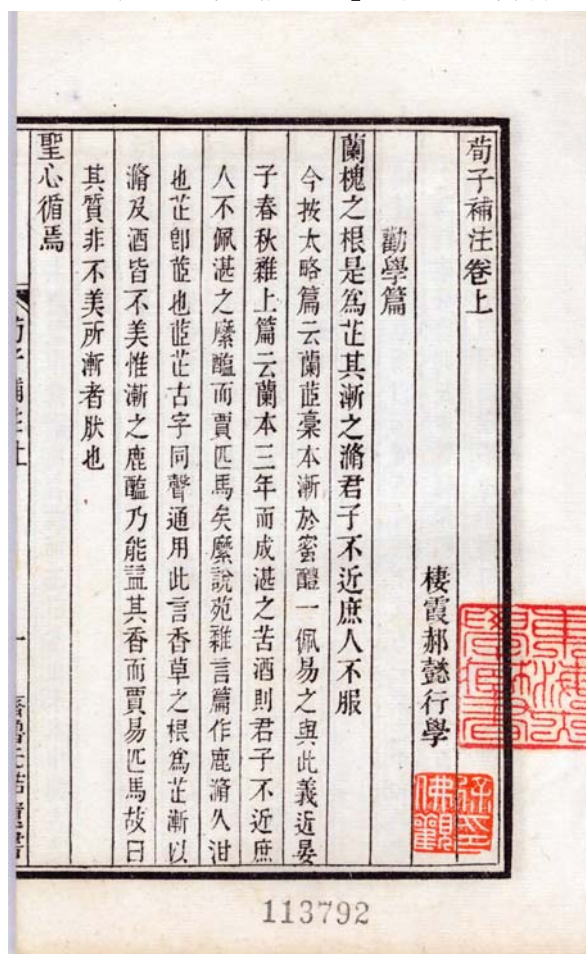 荀子補注卷上
棲霞郝懿行學
勸學篇
蘭槐之根是為芷其漸之滫君子不近庶人不服
今按大略篇云蘭茝稾本漸於蜜醴一佩易之與此義近晏
子春秋雜上篇云蘭本三年而成湛之苦酒則君子不近庶
人不佩湛之縻醢而賈匹馬矣縻說苑雜言篇作鹿滫久泔
也芷卽茝也茝芷古字同聲通用此言香草之根為芷漸以
滫及酒皆不美惟漸之鹿醢乃能益其香而賈易匹馬故曰
其質非不美所漸者肰也
聖心循焉
荀子補注上
一
齊魯先喆遺書
佛觀
113792